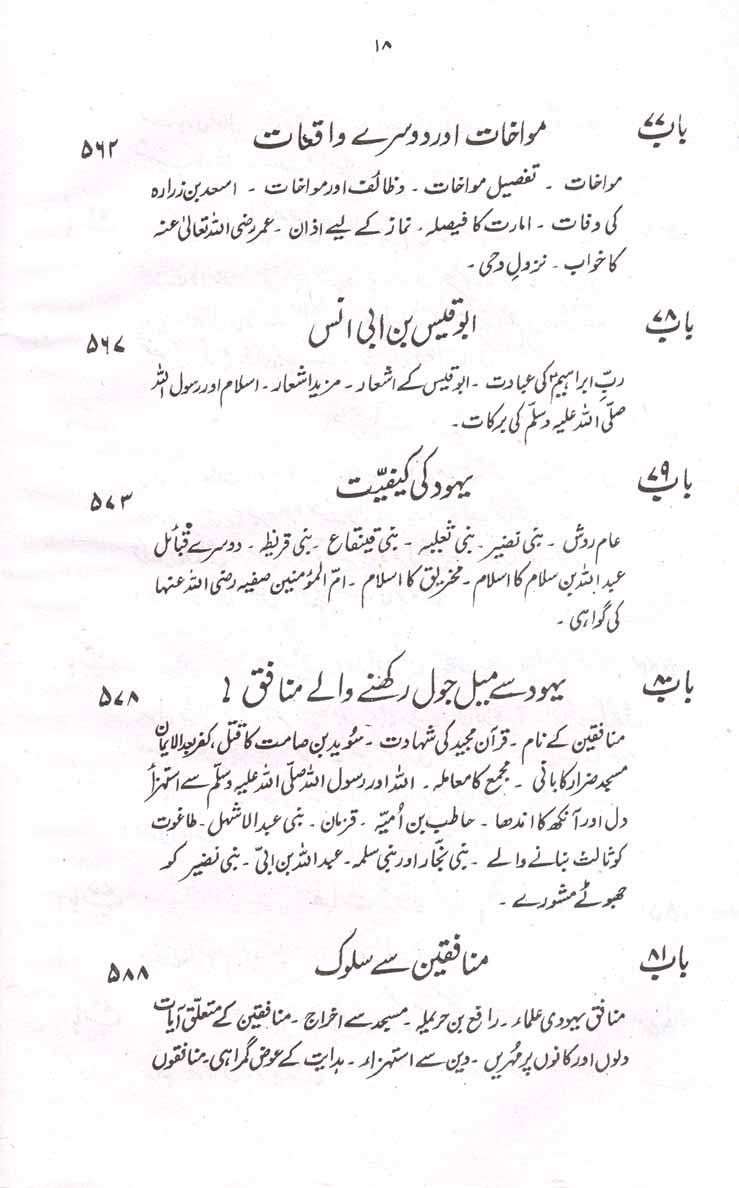 ۱۸
باب ۷۷ مواخات اور دوسرے واقعات ۵۶۲
مواخات ۔ تفصیل مواخات ۔ وظائف اور مواخات ۔ اسعد بن زرارہ
کی وفات ۔ امارت کا فیصلہ ۔ نماز کے لیے اذان ۔ عمر رضی اللہ تعالیٰ عنہ
کا خواب ۔ نزولِ وحی ۔
باب ۷۸ ابو قیس بن ابی انس ۵۶۷
ربِّ ابراہیمؑ کی عبادت ۔ ابو قیس کے اشعار ۔ مزید اشعار ۔ اسلام اور رسول اللہ
صلّی اللہ علیہ وسلّم کی برکات ۔
باب ۷۹ یہود کی کیفیّت ۵۷۳
عام روش ۔ بنی نضیر ۔ بنی ثعلبہ ۔ بنی قینقاع ۔ بنی قریظہ ۔ دوسرے قبائل
عبد اللہ بن سلام کا اسلام ۔ مخیریق کا اسلام ۔ امّ المؤمنین صفیہ رضی اللہ عنہا
کی گواہی ۔
باب ۸۰ یہود سے میل جول رکھنے والے منافق ! ۵۷۸
منافقین کے نام ۔ قرآن مجید کی شہادت ۔ سُوید بن صامت کا قتل ، کفر بعد الایمان
مسجد ضرار کا بانی ۔ مجمع کا معاملہ ۔ اللہ اور رسول اللہ صلّی اللہ علیہ وسلّم سے استہزأ
دل اور آنکھ کا اندھا ۔ حاطب بن اُمیّہ ۔ قزمان ۔ بنی عبد الاشہل ۔ طاغوت
کو ثالث بنانے والے ۔ بنی نجّار اور بنی سلمہ ۔ عبد اللہ بن ابیّ ۔ بنی نضیر کو
جھوٹے مشورے ۔
باب ۸۱ منافقین سے سلوک ۵۸۸
منافق یہودی علماء ۔ رافع بن حریملہ ۔ مسجد سے اخراج ۔ منافقین کے متعلّق آیات
دلوں اور کانوں پر مُہریں ۔ دین سے استہزاء ۔ ہدایت کے عوض گمراہی ۔ منافقوں